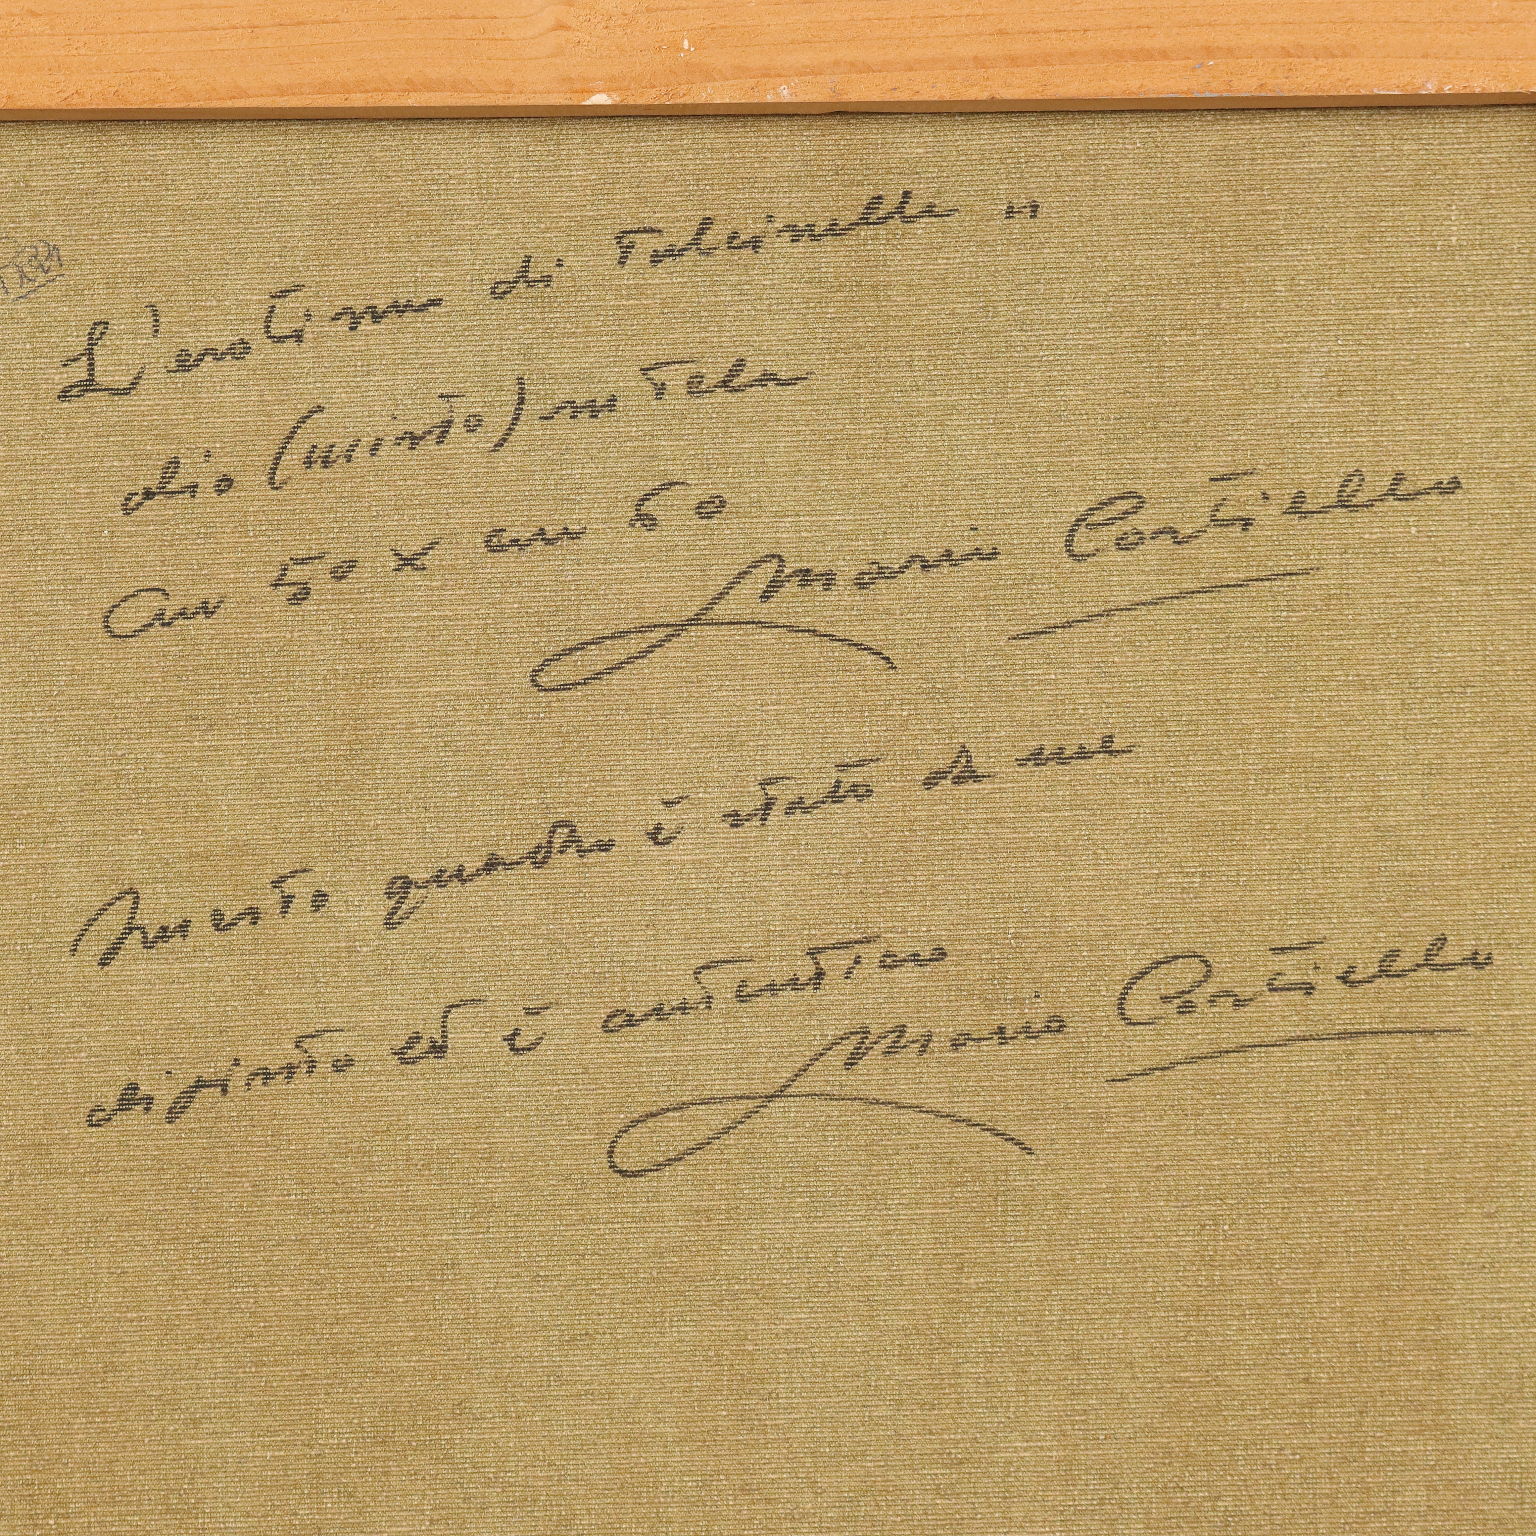 L'erotismo di Pulcinella "
olio (misto) su tela
cm 50 x cm 50
Mario Cortiello
Questo quadro è stato da me
dipinto ed è autentico
Mario Cortiello